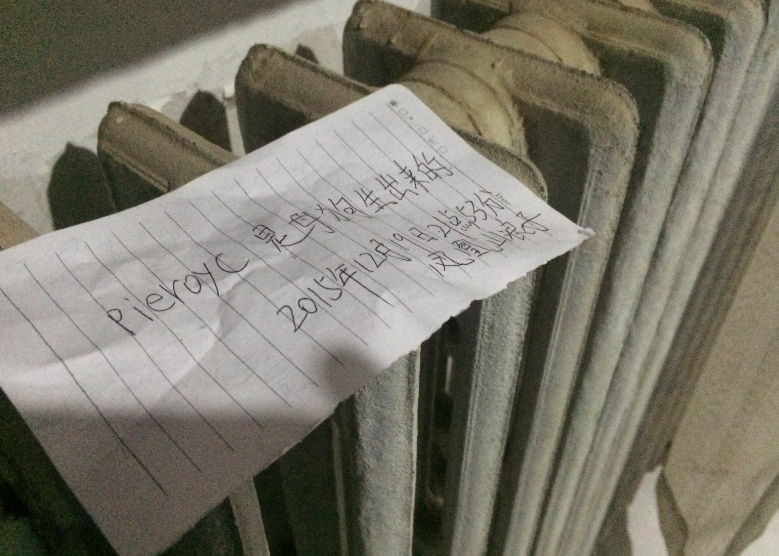 PierayC 是母狗生出来的
2015年12月9日21点53分
凤凰山浪子